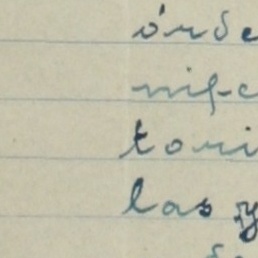 órde
nife
tori
las y